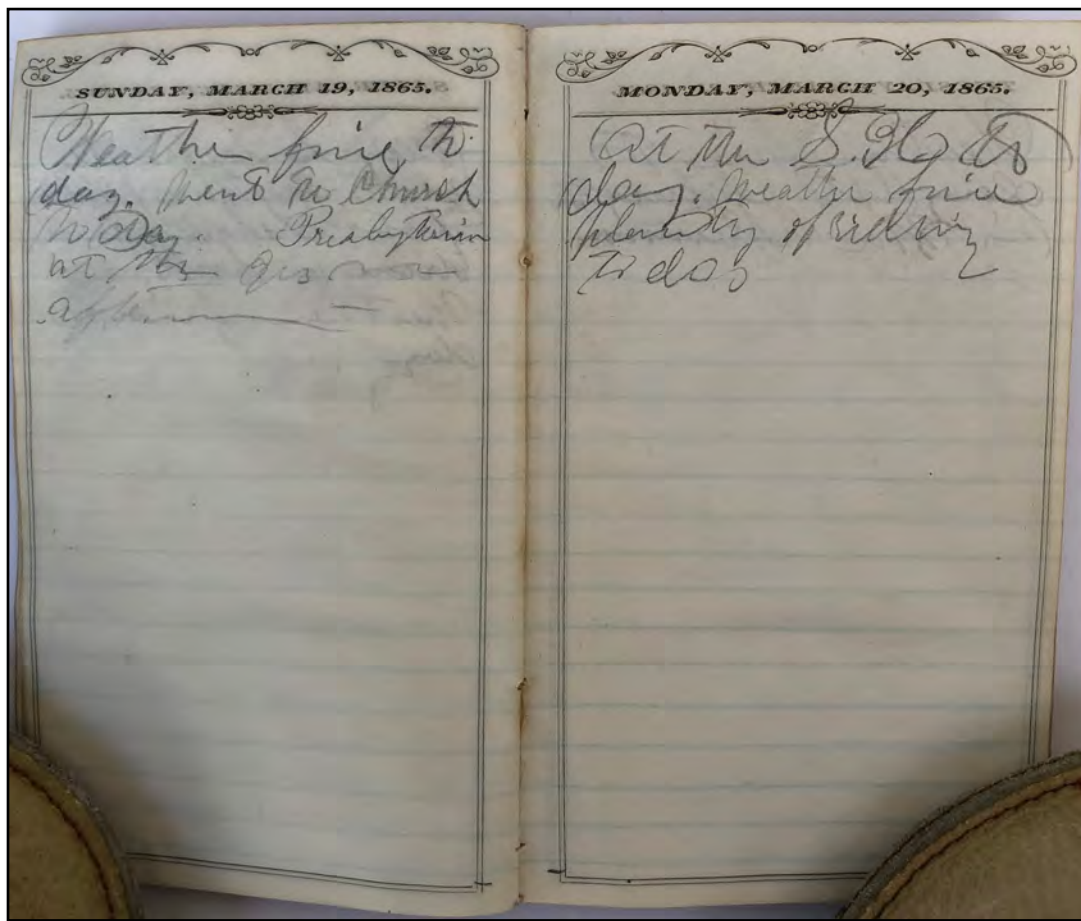 SUNDAY, MARCH 19, 1865.
Weather fine to
day. Went to Church
to Day. Presbyterian
at this
afternoon
MONDAY, MARCH 20, 1865.
At the S. Ho to
day. Weather fine
plenty of riding
to day